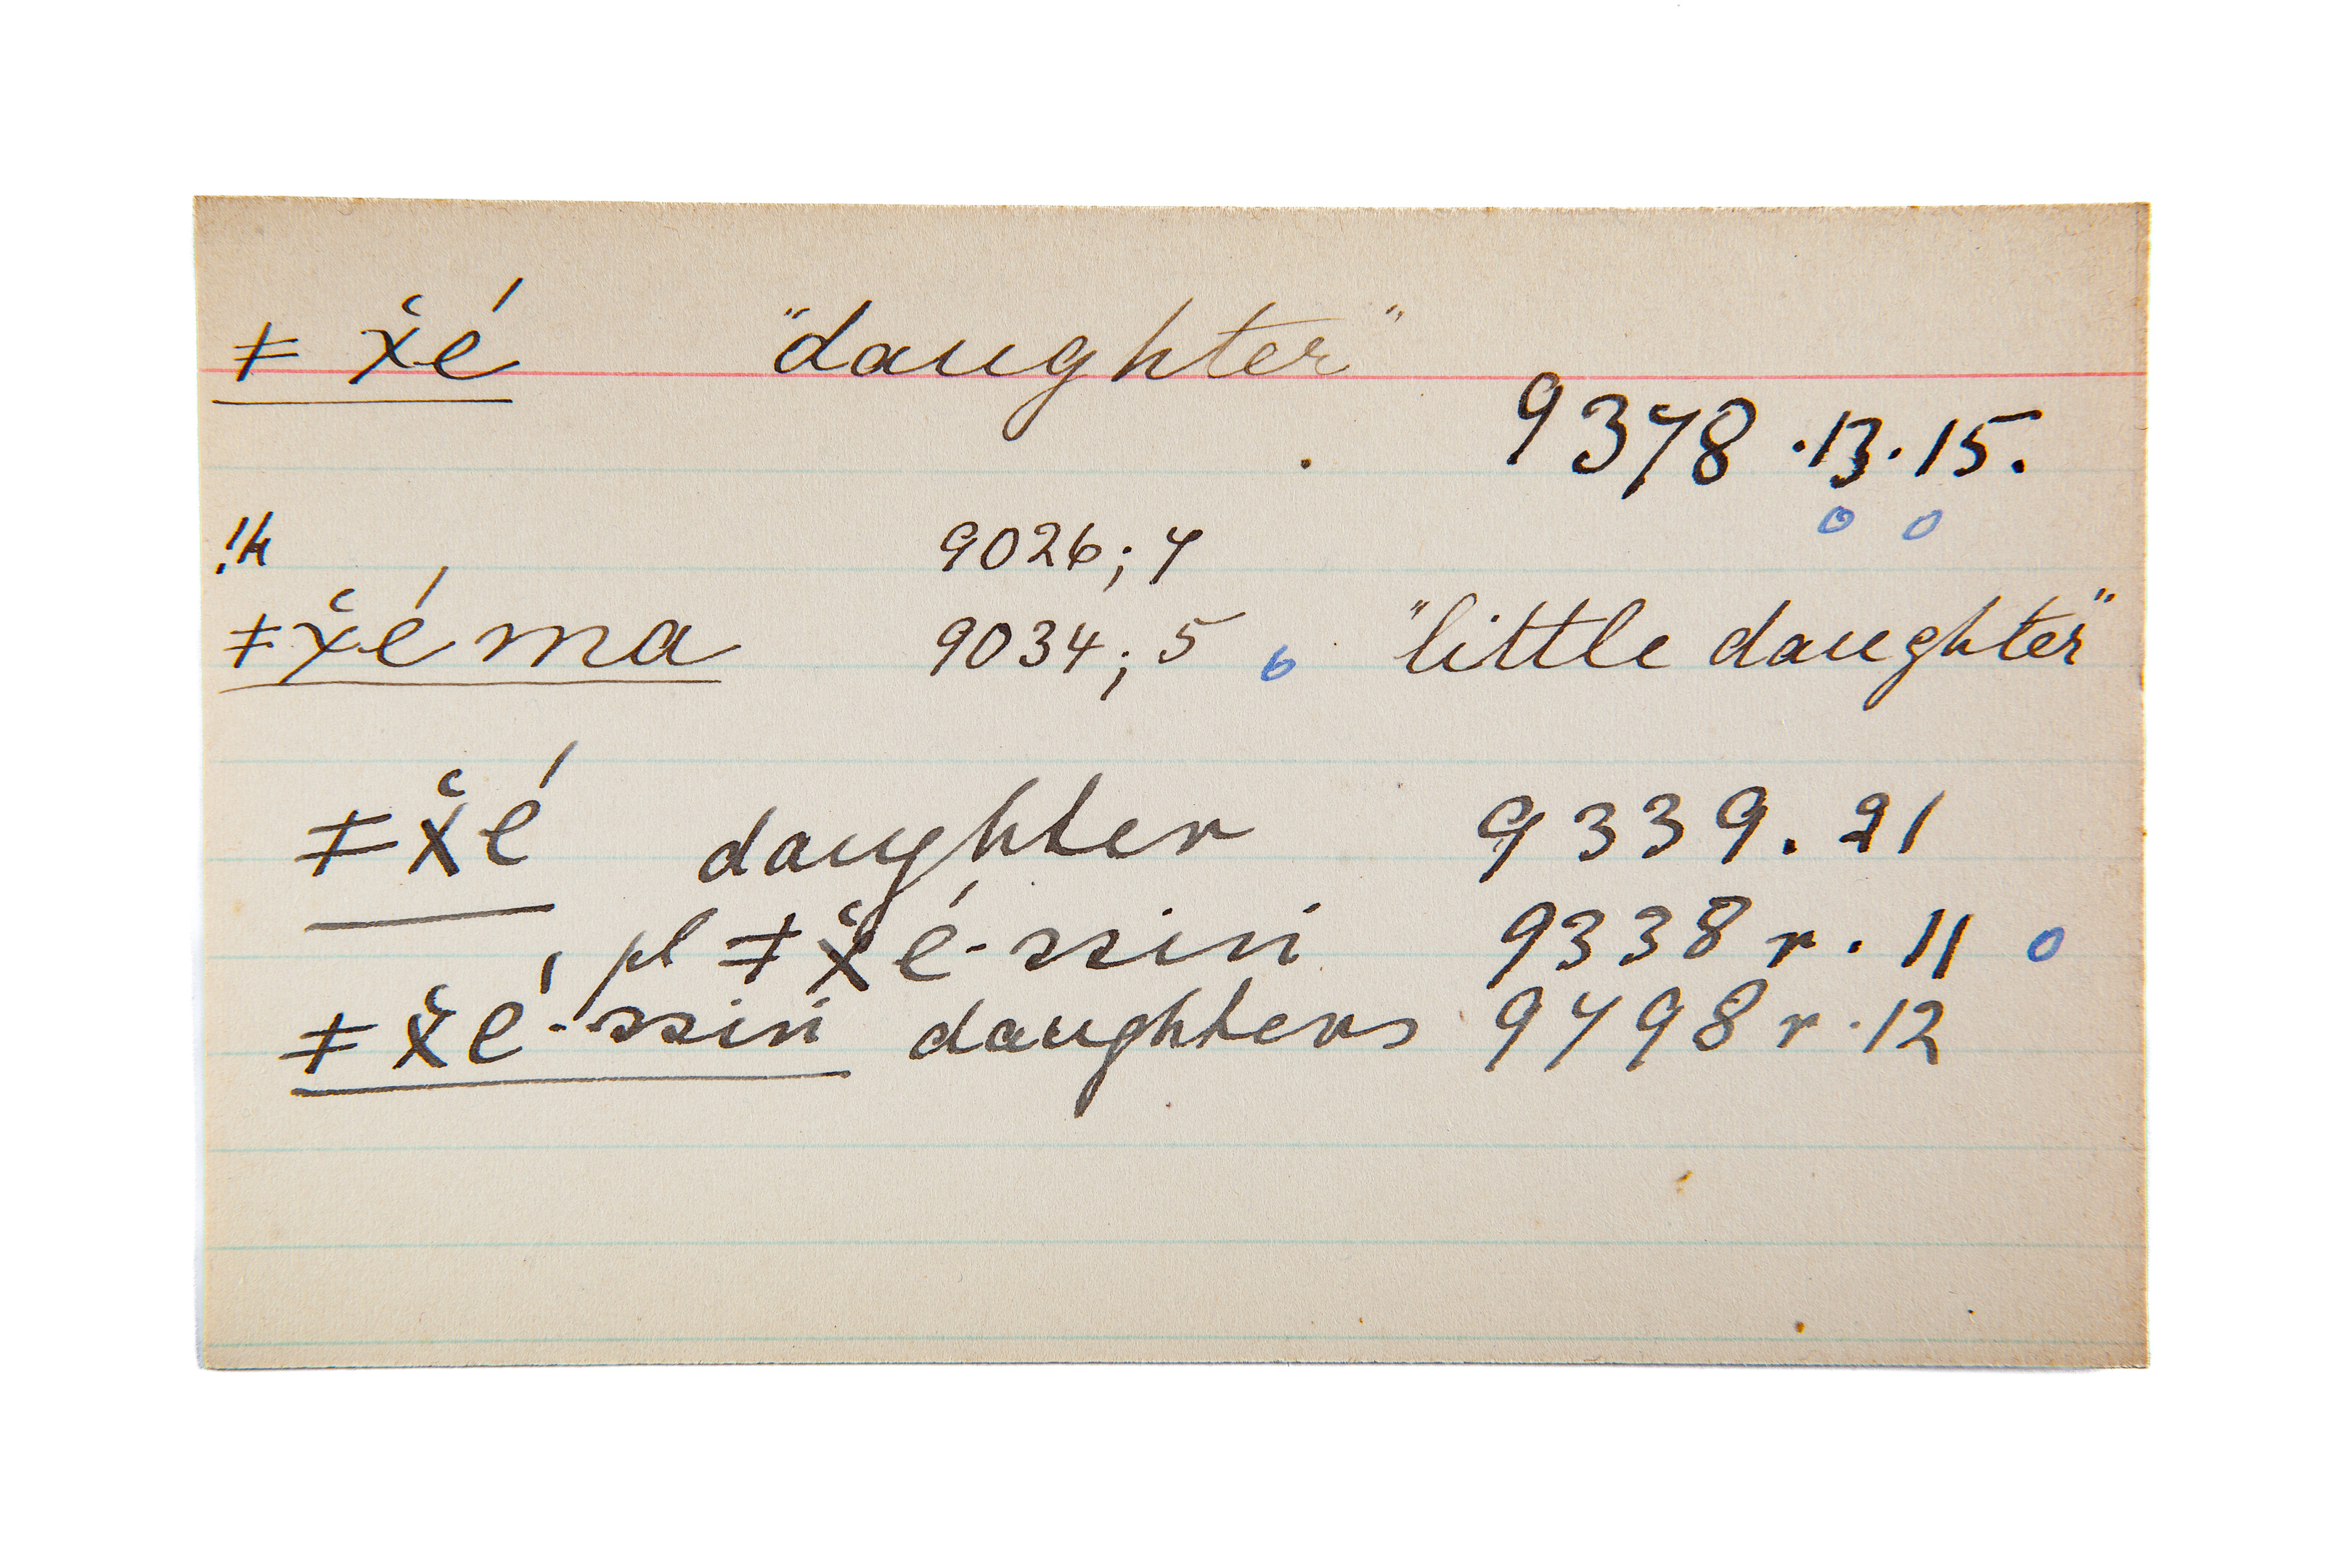 ǂ x̌é "daughter"
9378 ·13·15.
!k 9026; 7
ǂx̌é ma 9034; 5 "little daughter"
ǂx̌é daughter 9339. 21
pl ǂx̌é-ssiŋ 9338 r. 11
ǂx̌é-ssiŋ daughters 9798 r·12